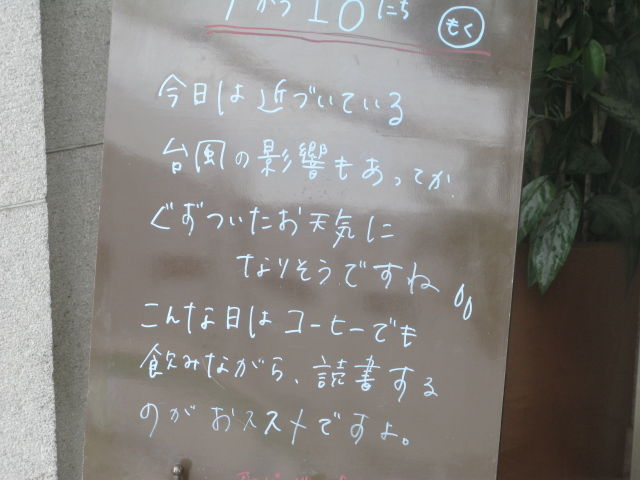 7がつ10にち もく
今日は近づいている
台風の影響もあってか
ぐずついたお天気に
なりそうですね
こんな日はコーヒーでも
飲みながら、読書する
のがおススメですよ。